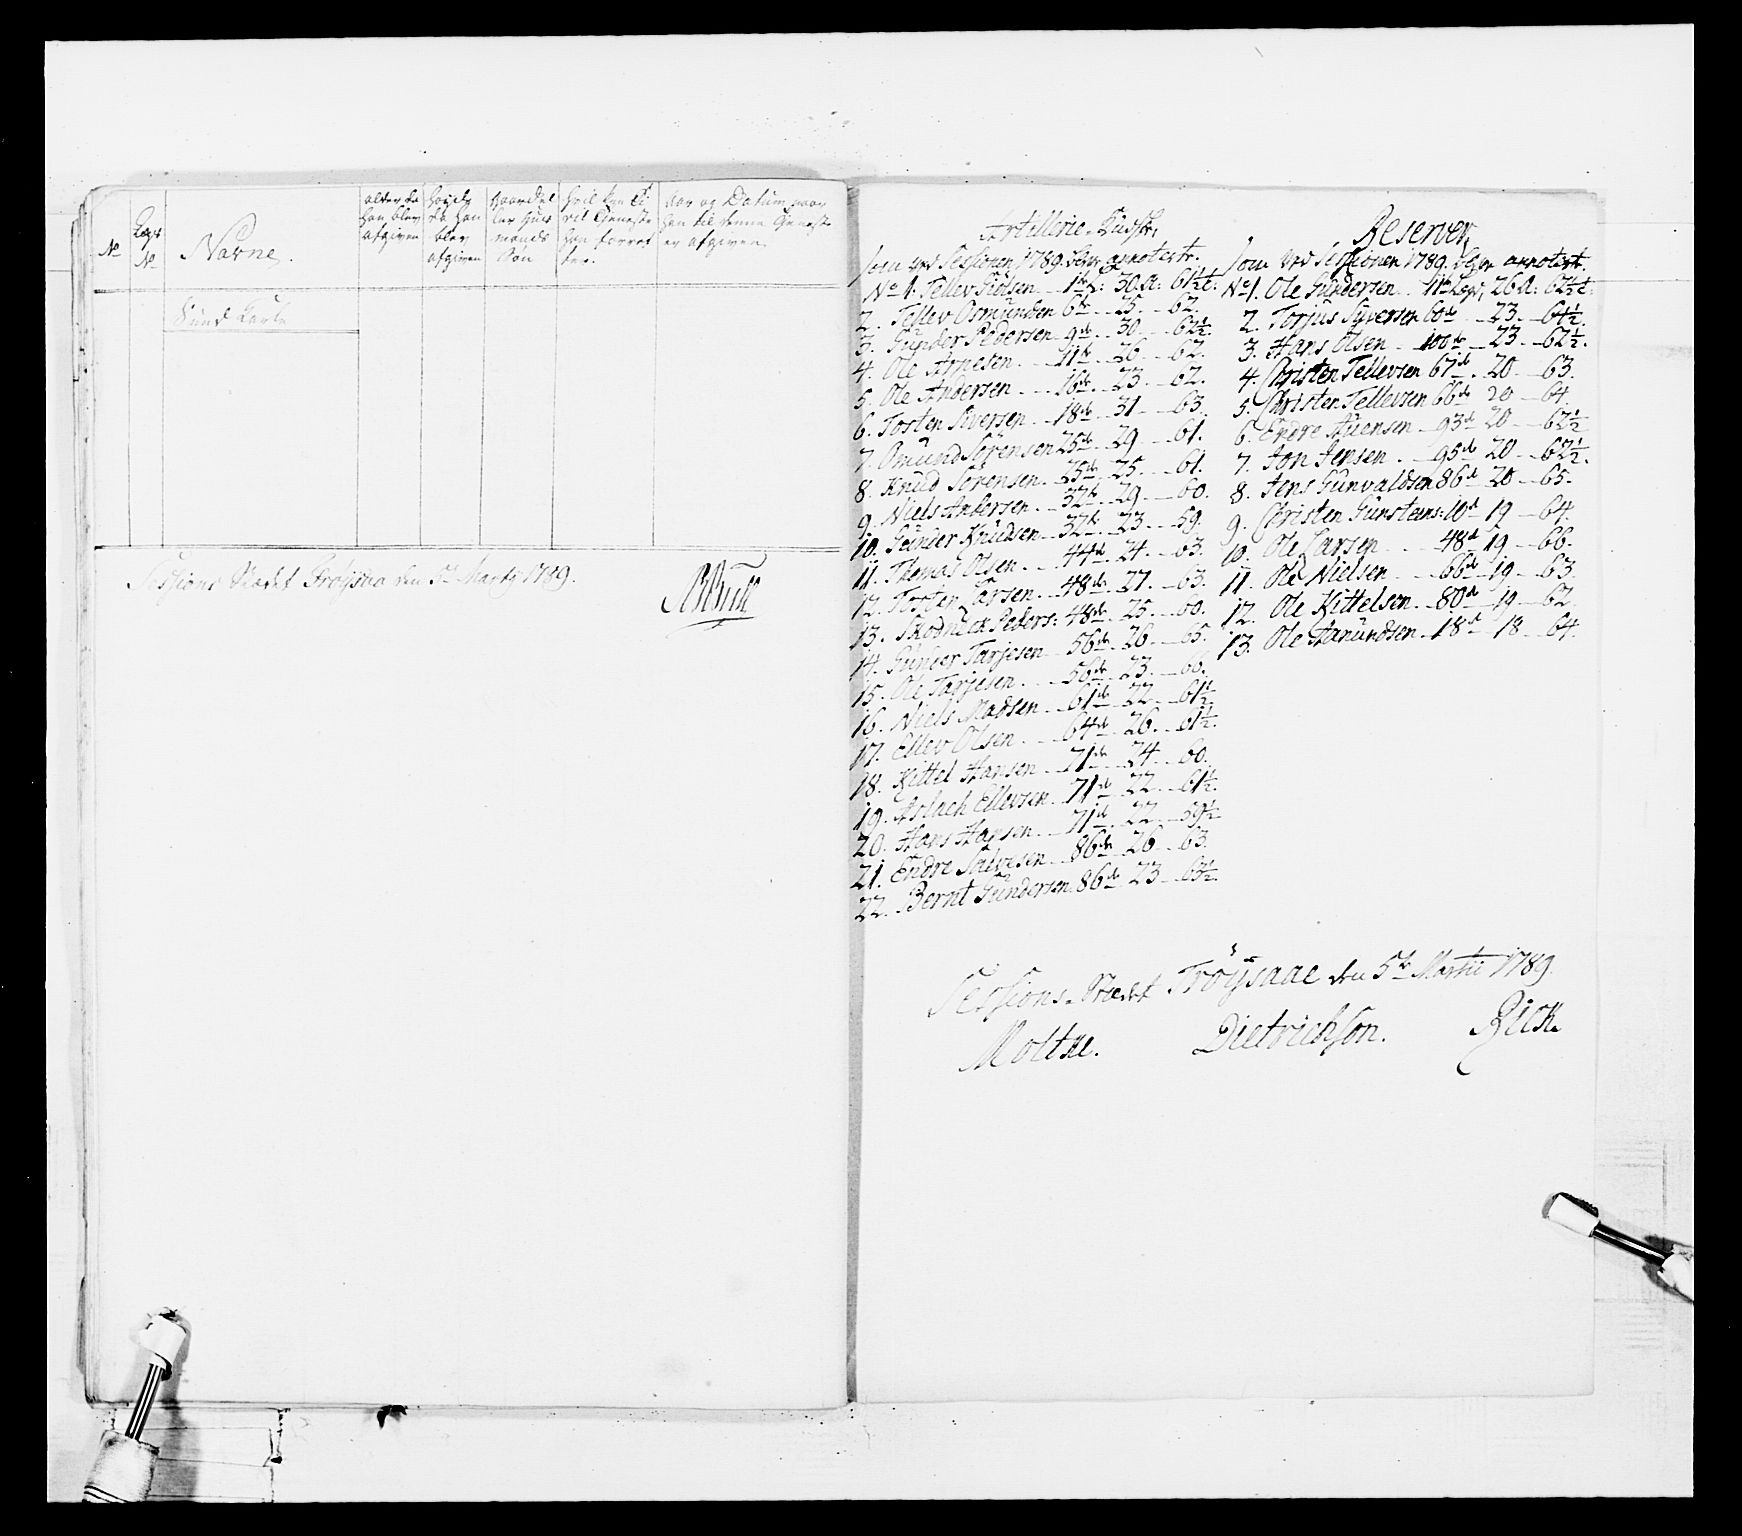 No
Legs No
Navne.
alder da han blev afgiven
høide da han blev afgiven
hvor han til denne Tieneste er afgiven.
Sund Karle
Sessions Stædet Tröysaa den 5te Marty 1789.
Artillerie-Kudske,
som ved Sessionen 1789 bleve annoterte.
No 1. Tellev Siölsen 1te L: 30 A: 61½ t:
2. Tellev Osmunden 6te 25 62.
3. Gunder Pedersen 9de 30 62½.
4. Ole Arnesen 11te 26 62.
5. Ole Andersen 16de 23 62.
6. Tosten Siversen 18de 31 63.
7. Omund Sörensen 25de 29 61.
8. Knud Sörensen 25de 25 61.
9. Niels Andersen 37te 29 60.
10. Gunder Knudsen 37te 23 59.
11. Thomas Olsen 44de 24 63.
12. Tosten Larsen 48de 27 63.
13. Skodneck Peders: 48de 25 60.
14. Gunder Tarjesen 56de 26 65.
15. Ole Tarjesen 56de 23 66.
16. Niels Madsen 61de 22 61½.
17. Ellev Olsen 64de 26 61½.
18. Kittel Hansen 71de 24 60.
19. Aslach Ellevsen 71de 22 61½.
20. Hans Hansen 71de 22 59½
21. Endre Salvesen 86de 26 63.
22. Bernt Gundersen 86de 23 63½.
Reserver,
som ved Sessionen 1789 bleve annoterte.
No 1. Ole Gundersen 11te Legd, 26 A: 62½ t:
2. Torjus Syversen 60de 23 64½.
3. Hans Olsen 100de 23 62½.
4. Christen Tellevsen 67de 20 63.
5. Christen Tellevsen 66de 20 64.
6. Endre Auensen 93de 20 62½
7. Jon Jensen 95de 20 62½.
8. Jens Gunvaldsen 86de 20 65.
9. Christen Gunsteins: 10de 19 64.
10. Ole Larsen 48de 19 66.
11. Ole Nielsen 66de 19 63.
12. Ole Kittelsen 80de 19 62.
13. Ole Aanundsen 18de 18 64.
Sessions-Stædet Tröysaae den 5te Martii 1789.
Moltke. Dietrichson. Rick